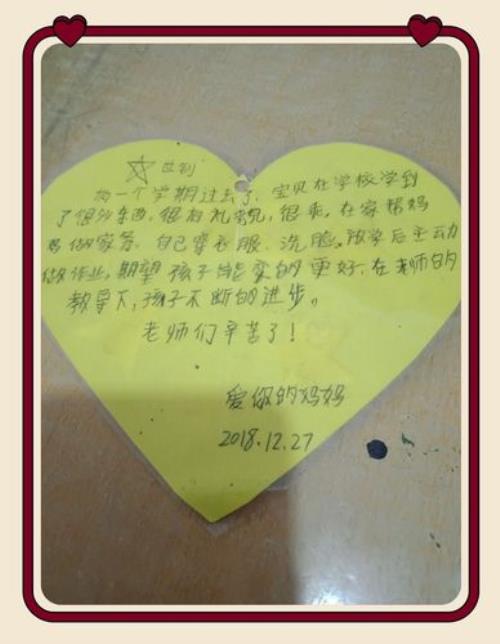 ☆ 世钊
一个学期过去了，宝贝在学校学到
了很多东西，很有礼貌，很乖，在家帮妈
妈做家务，自己穿衣服、洗脸，放学后主动
做作业，期望孩子能变的更好，在老师的
教导下，孩子不断的进步。
老师们辛苦了！
爱你的妈妈
2018.12.27